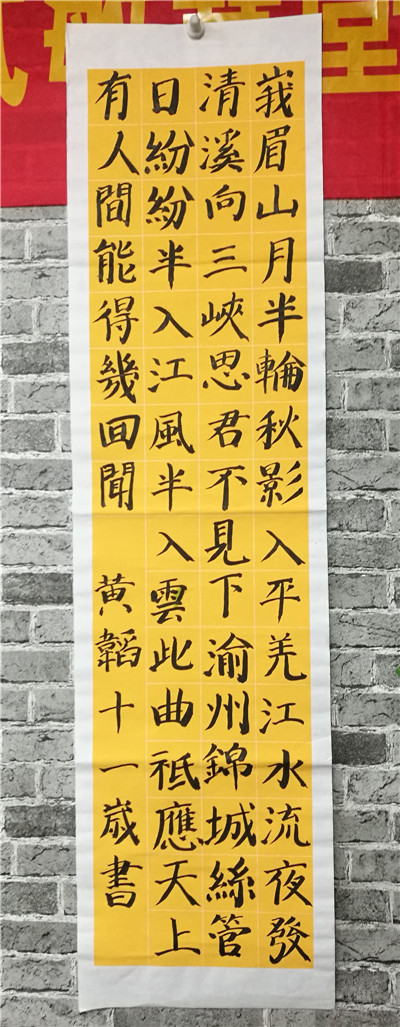 峨眉山月半輪秋影入平羌江水流夜發
清溪向三峽思君不見下渝州錦城絲管
日紛紛半入江風半入雲此曲祗應天上
有人間能得幾回聞 黄韜十一歲書